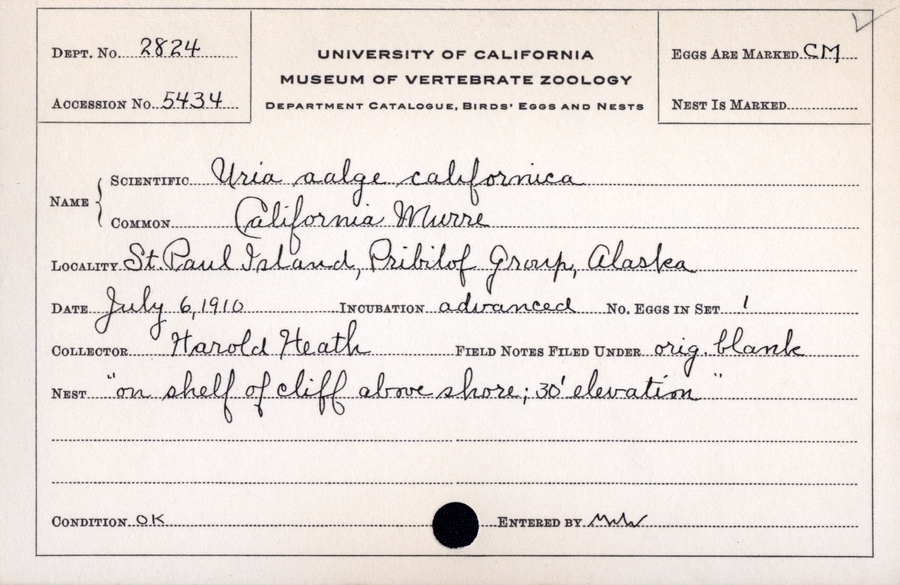 DEPT. No. 2824
UNIVERSITY OF CALIFORNIA
EGGS ARE MARKED CM
MUSEUM OF VERTEBRATE ZOOLOGY
ACCESSION No. 5434
DEPARTMENT CATALOGUE, BIRDS' EGGS AND NESTS
NEST IS MARKED
NAME
SCIENTIFIC Uria aalge californica
COMMON California Murre
LOCALITY St. Paul Island, Pribilof Group, Alaska
DATE July 6, 1910 INCUBATION advanced No. EGGS IN SET 1
COLLECTOR Harold Heath FIELD NOTES FILED UNDER orig. blank
NEST "on shelf of cliff above shore; 30' elevation"
CONDITION OK ENTERED BY